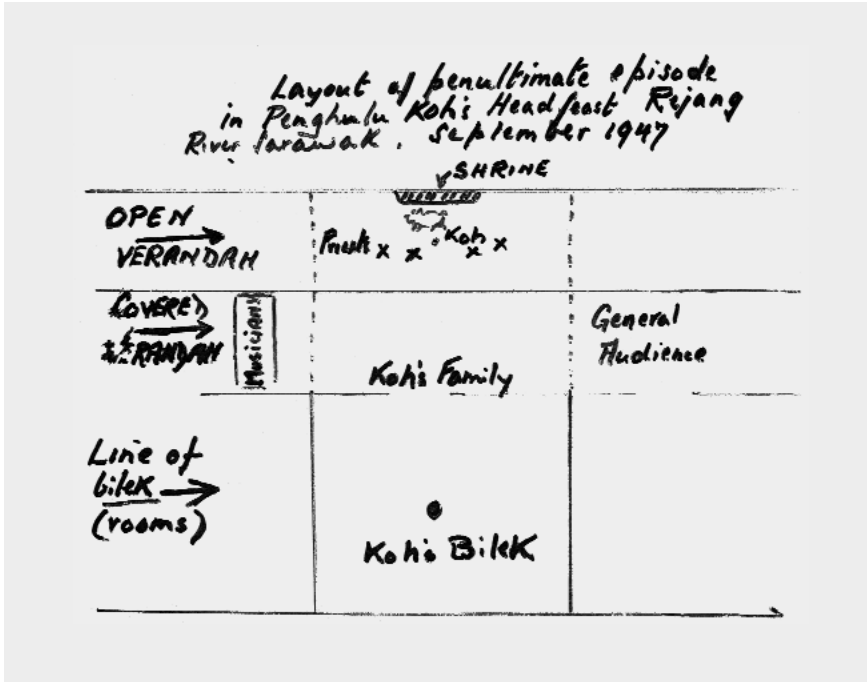 Layout of penultimate episode
in Penghulu Koh's Headfeast Rejang
River Sarawak. September 1947
SHRINE
OPEN
VERANDAH
Priests x x Koh x x
COVERED
VERANDAH
Musicians
General
Audience
Koh's Family
Line of
bilek
(rooms)
Koh's Bilek